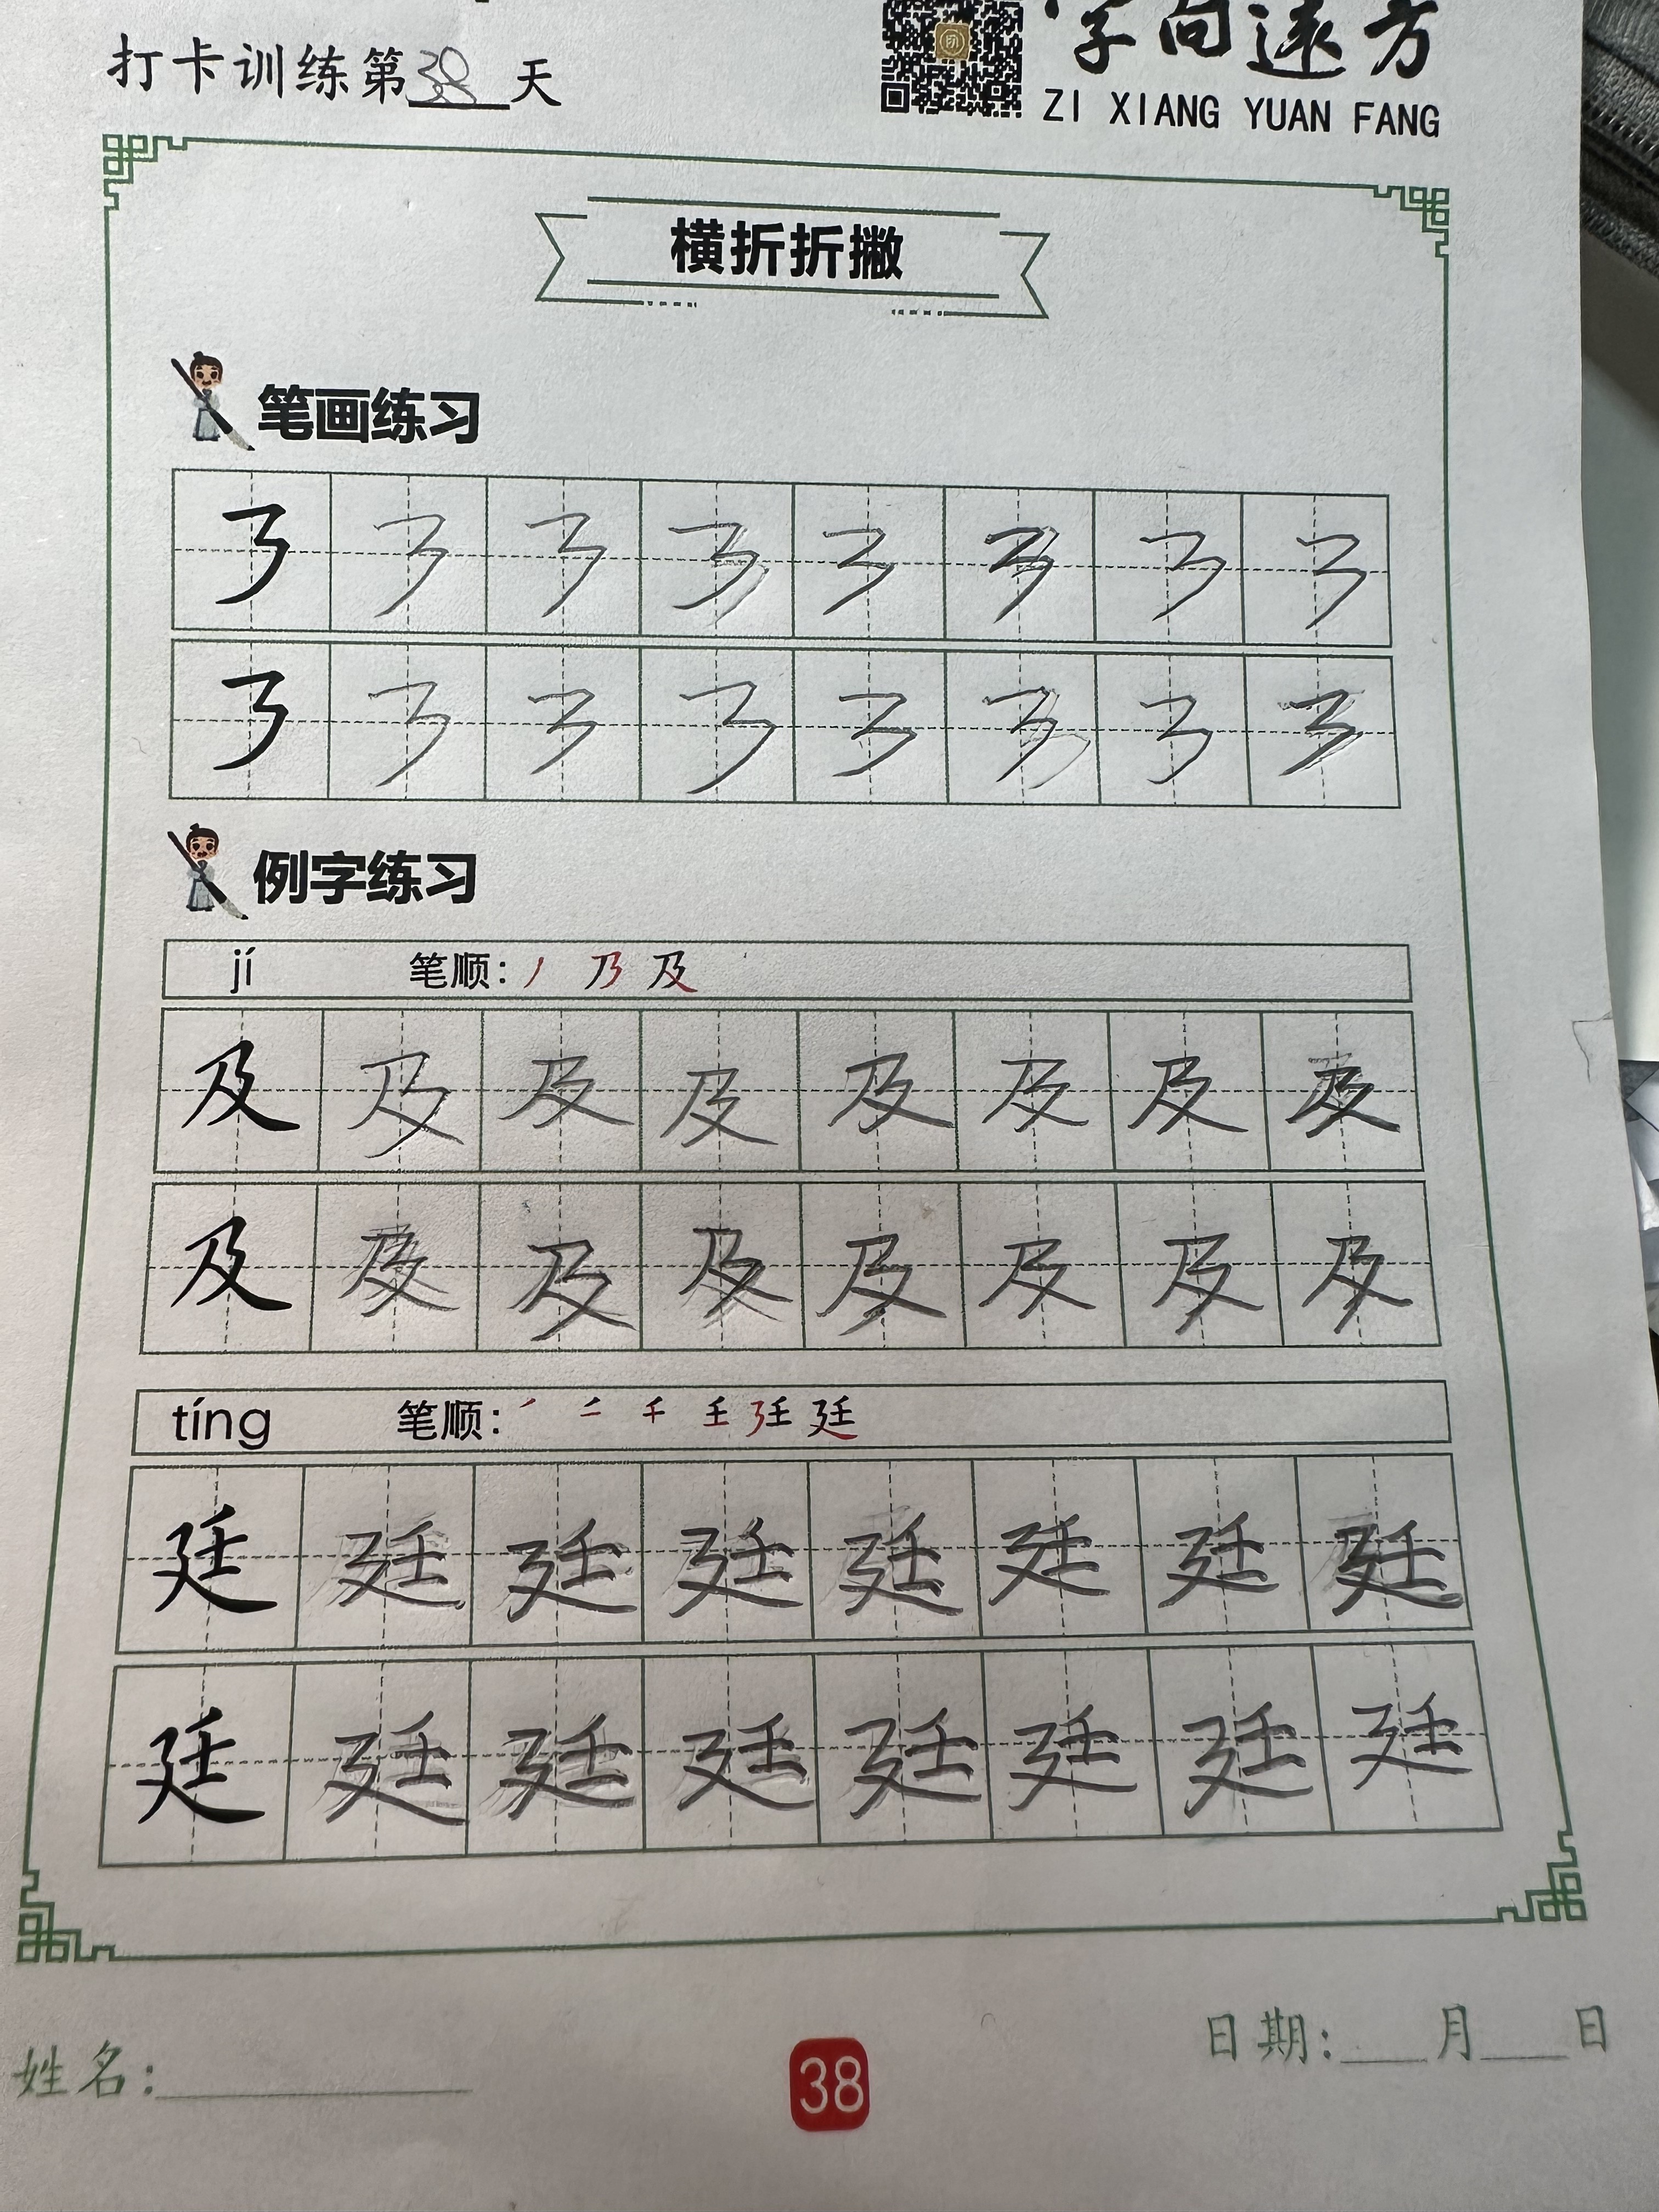 打卡训练第38天
字向远方
ZI XIANG YUAN FANG
横折折撇
笔画练习
例字练习
jí 笔顺: 丿 乃 及
及 及 及 及 及 及 及 及
及 及 及 及 及 及 及 及
tíng 笔顺: 廷
廷 廷 廷 廷 廷 廷 廷 廷
廷 廷 廷 廷 廷 廷 廷 廷
姓名:
38
日期: 月 日